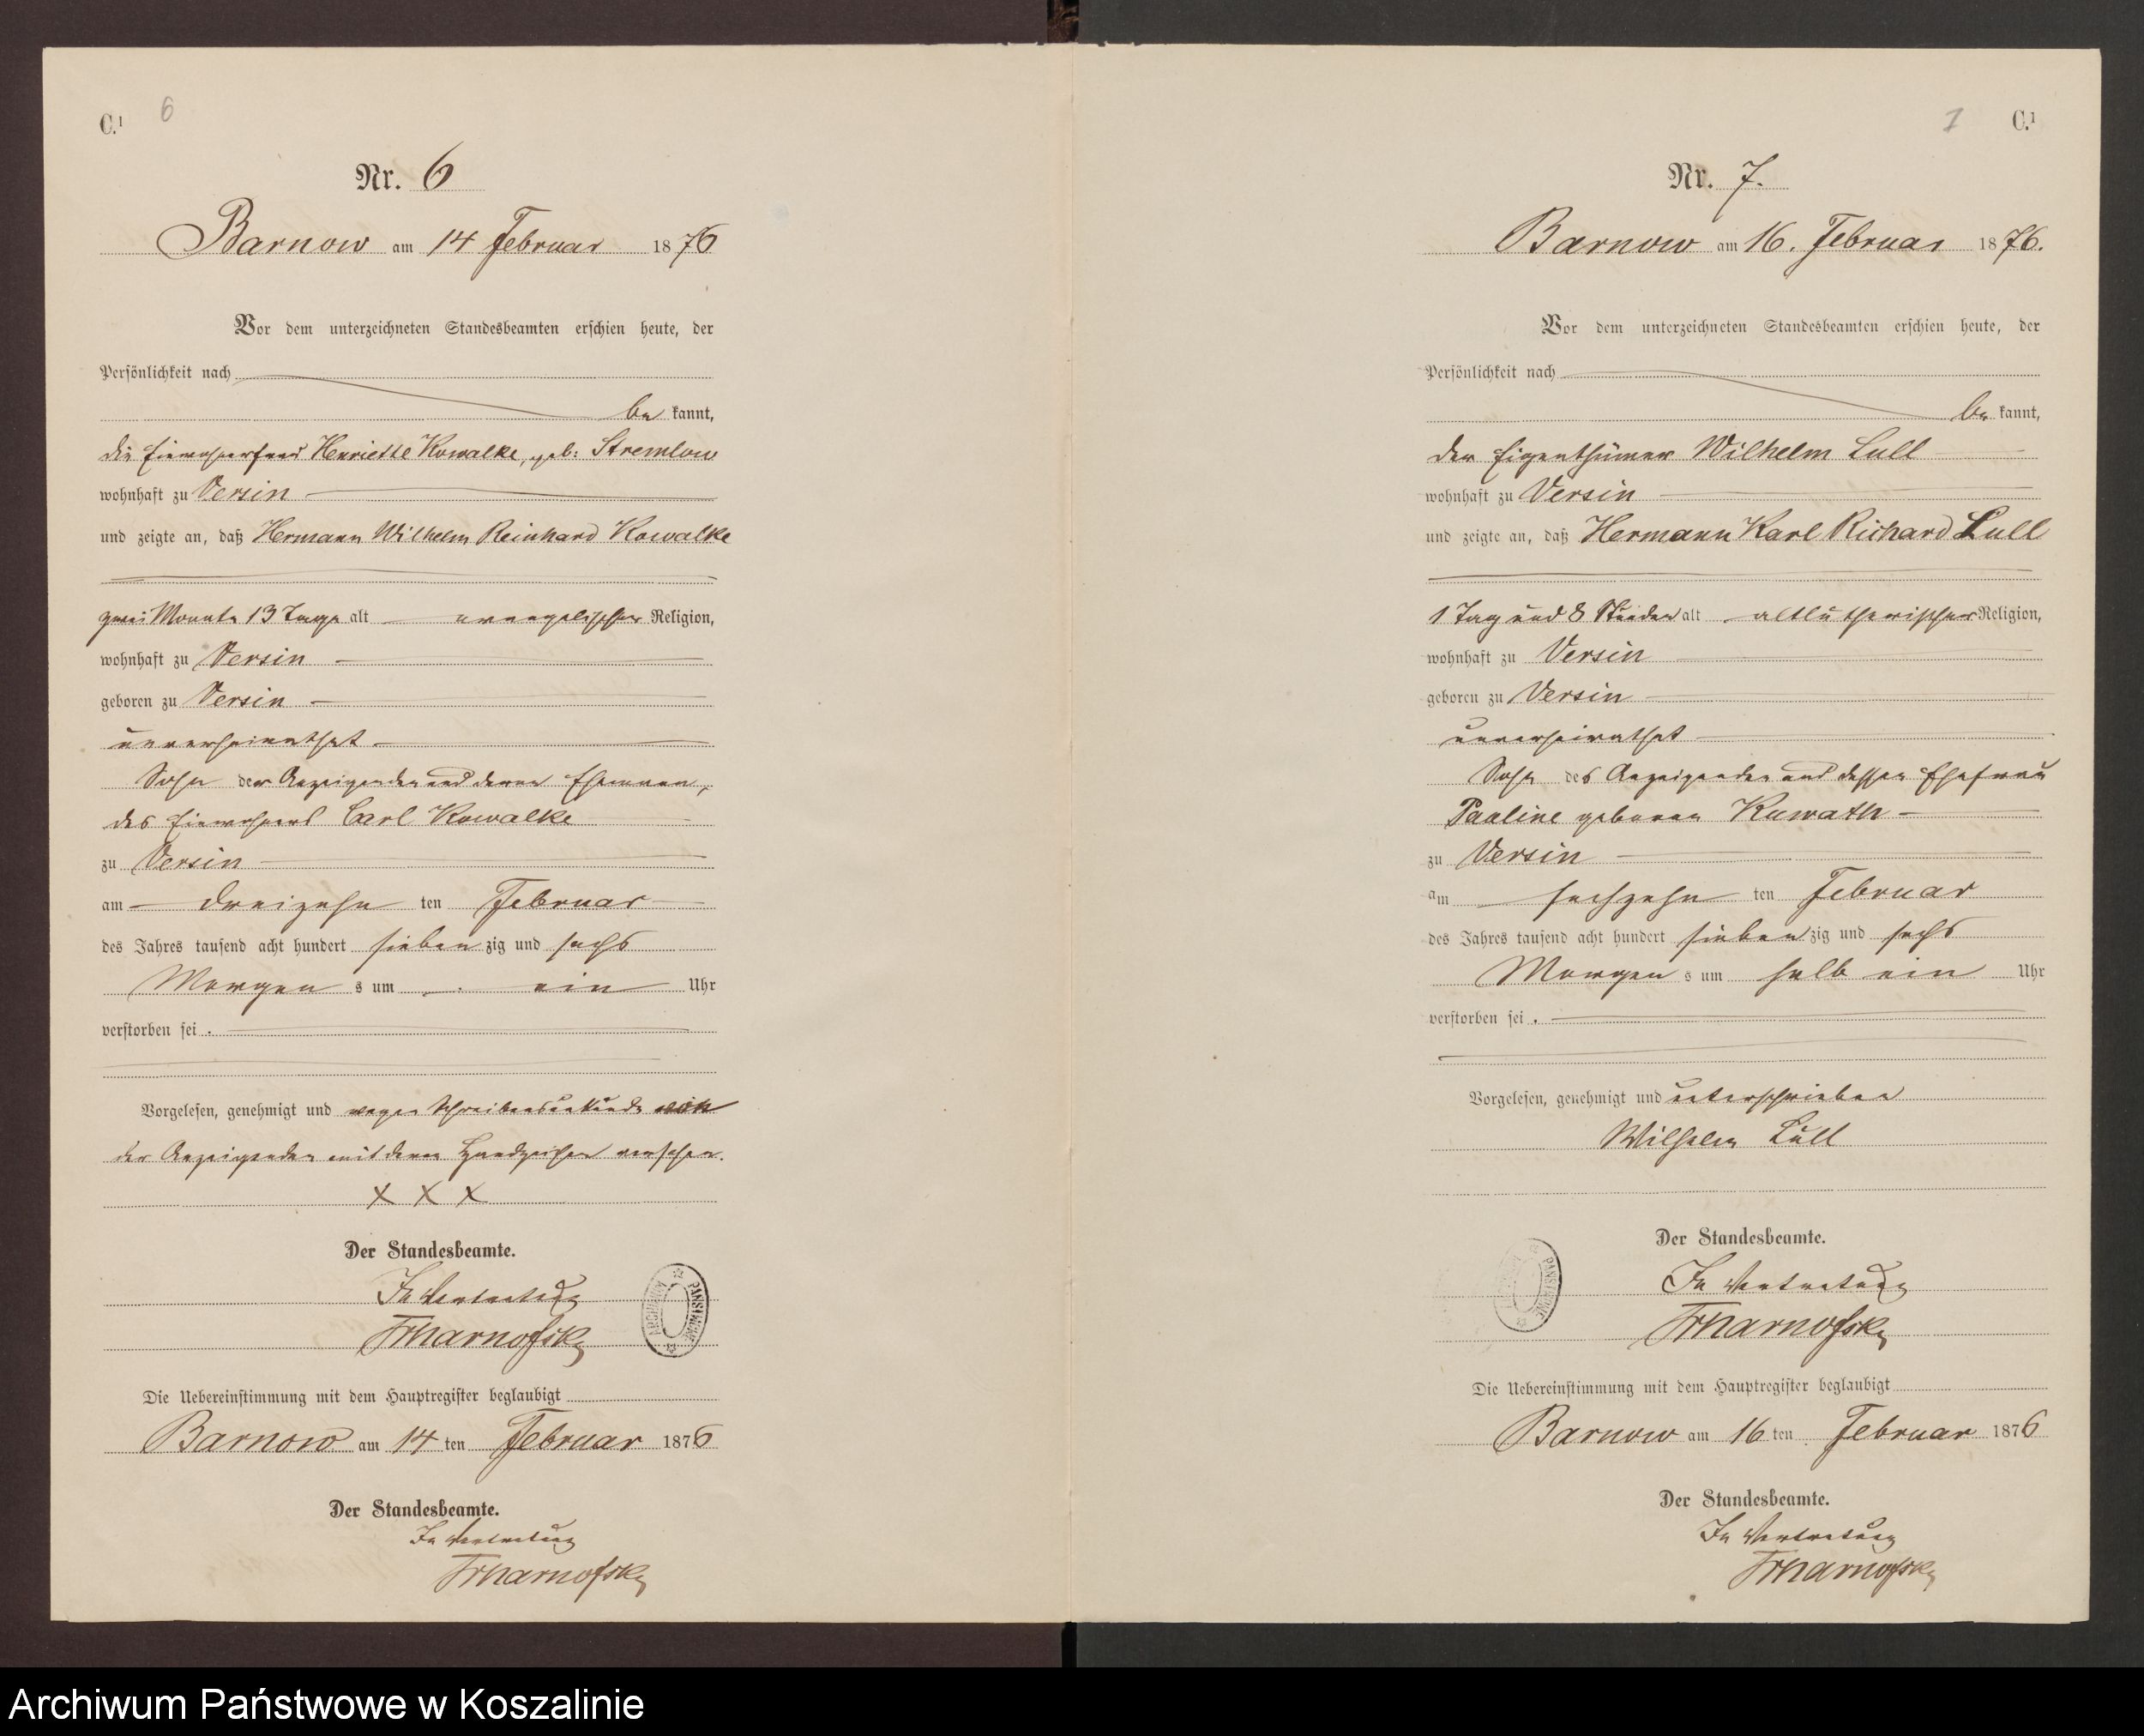 C.¹ 6
Nr. 6
Barnow am 14 Februar 1876
Vor dem unterzeichneten Standesbeamten erschien heute, der
Persönlichkeit nach
be kannt,
die Einwohnerfrau Henriette Kowalke, geb: Stremlow
wohnhaft zu Versin
und zeigte an, daß Hermann Wilhelm Reinhard Kowalke
zwei Monate 13 Tage alt evangelischer Religion,
wohnhaft zu Versin
geboren zu Versin
unverheirathet
Sohn der Anzeigenden und deren Ehemann,
des Einwohners Carl Kowalke
zu Versin
am dreizehn ten Februar
des Jahres tausend acht hundert sieben zig und sechs
Morgen s um ein Uhr
verstorben sei.
Vorgelesen, genehmigt und wegen Schreibensunkunde von
der Anzeigenden mit deren Handzeichen versehen.
X X X
Der Standesbeamte.
In Vertretung
ARCHIWUM PAŃSTWOWE
Die Uebereinstimmung mit dem Hauptregister beglaubigt
Barnow am 14 ten Februar 1876
Der Standesbeamte.
In Vertretung
7 C.¹
Nr. 7.
Barnow am 16. Februar 1876.
Vor dem unterzeichneten Standesbeamten erschien heute, der
Persönlichkeit nach
be kannt,
der Eigenthümer Wilhelm Lull
wohnhaft zu Versin
und zeigte an, daß Hermann Karl Richard Lull
1 Tag und 8 Stunden alt altlutherischer Religion,
wohnhaft zu Versin
geboren zu Versin
unverheirathet
Sohn des Anzeigenden und dessen Ehefrau
Pauline geboren Kuwath
zu Versin
am sechzehn ten Februar
des Jahres tausend acht hundert sieben zig und sechs
Morgen s um halb ein Uhr
verstorben sei.
Vorgelesen, genehmigt und unterschrieben
Wilhelm Lull
Der Standesbeamte.
In Vertretung
ARCHIWUM PAŃSTWOWE
Die Uebereinstimmung mit dem Hauptregister beglaubigt
Barnow am 16 ten Februar 1876
Der Standesbeamte.
In Vertretung
Archiwum Państwowe w Koszalinie